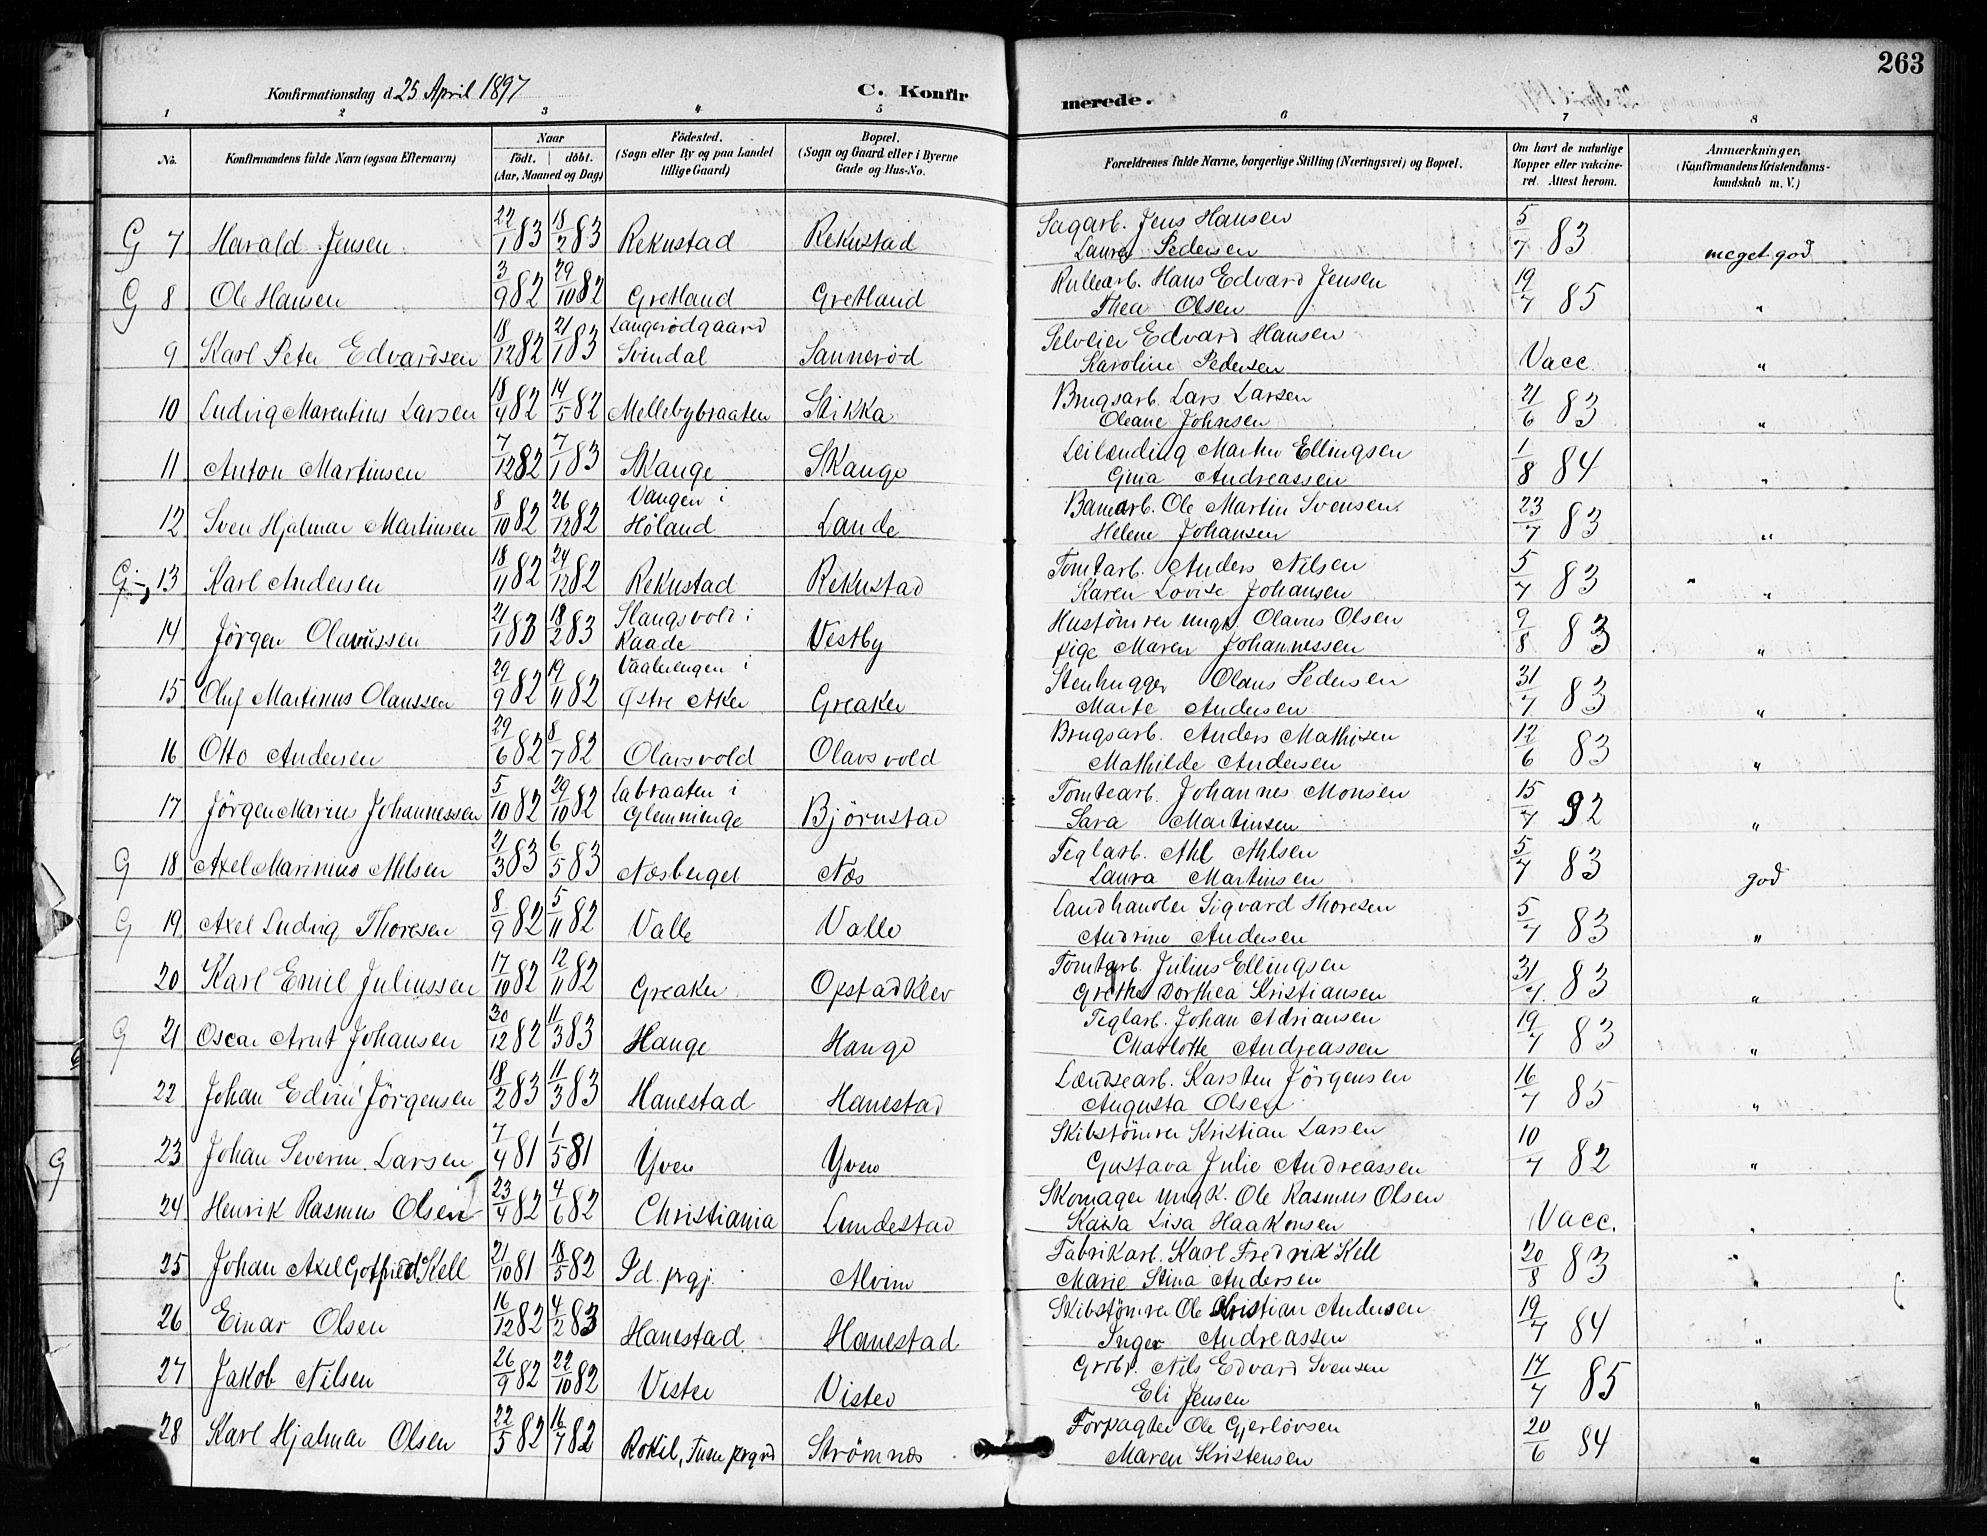 263
Konfirmationsdag d. 25 April 1897
C. Konfirmerede.
1 2 3 4 5 6 7 8
No. | Konfirmandens fulde Navn (ogsaa Efternavn) | Naar født. | døbt. (Aar, Maaned og Dag) | Fødested. (Sogn eller By og paa Landet tillige Gaard) | Bopæl. (Sogn og Gaard eller i Byerne Gade og Hus-No. | Forældrenes fulde Navne, borgerlige Stilling (Næringsvei) og Bopæl. | Om havt de naturlige Kopper eller vakcineret. Attest herom. | Anmærkninger, (Konfirmandens Kristendomskundskab m. V.)
G 7 Harald Jensen 22/1 83 18/2 83 Rekustad Rekustad Sagarb. Jens Hansen Laura Pedersen 5/7 83 meget god
G 8 Ole Hansen 3/9 82 29/10 82 Gretland Gretland Rullearb. Hans Edvard Jensen Thea Olsen 19/7 85 "
9 Karl Peter Edvardsen 18/12 82 21/1 83 Langerødgaard Svindal Sannerød Selveier Edvard Hansen Karoline Pedersen Vacc. "
10 Ludvig Marentius Larsen 18/4 82 14/5 82 Mellebybraaten Stikka Brugsarb. Lars Larsen Oleane Johnsen 21/6 83 "
11 Anton Martinsen 7/12 82 7/1 83 Skange Skange Leilending Martin Ellingsen Gina Andreassen 1/8 84 "
12 Sven Hjalmar Martinsen 8/10 82 26/12 82 Vangen i Høland Lande Banearb. Ole Martin Svensen Helene Johansen 23/7 83 "
G 13 Karl Andersen 18/11 82 24/12 82 Rekustad Rekustad Tomtarb. Anders Nilsen Karen Lovise Johansen 5/7 83 "
14 Jörgen Olavussen 21/1 83 18/2 83 Slangsvold i Raade Vestby Hustömrer ungk. Olavus Olsen pige Maren Johannessen 9/8 83 "
15 Oluf Martinus Olaussen 29/9 82 19/11 82 Vaalerengen i Østre Aker Greaker Stenhugger Olaus Pedersen Marte Andersen 31/7 83 "
16 Otto Andersen 29/6 82 8/7 82 Olavsvold Olavsvold Brugsarb. Anders Mathisen Mathilde Andersen 12/6 83 "
17 Jörgen Marius Johannessen 5/10 82 29/10 82 Labraaten i Glemminge Björnstad Tomtearb. Johannes Monsen Sara Martinsen 15/7 92 "
G 18 Axel Marinius Nilsen 21/3 83 6/5 83 Næsberget Næs Teglarb. Nils Nilsen Laura Martinsen 5/7 83 god
G 19 Axel Ludvig Thoresen 8/9 82 5/11 82 Valle Valle Landhandler Sigvard Thoresen Andrine Andersen 5/7 83 "
20 Karl Emil Juliussen 17/10 82 12/11 82 Greaker Opstadklev Tomtarb. Julius Ellingsen Grethe Dorthea Kristiansen 31/7 83 "
G 21 Oscar Arnt Johansen 30/12 82 11/3 83 Hauge Hauge Teglarb. Johan Adriansen Charlotte Andreassen 19/7 83 "
22 Johan Edvin Jörgensen 18/2 83 11/3 83 Hanestad Hanestad Lændsearb. Karsten Jörgensen Augusta Olsen 16/7 85 "
G 23 Johan Severin Larsen 7/4 81 1/5 81 Yven Yven Skibstömrer Kristian Larsen Gustava Julie Andreassen 10/7 82 "
24 Henrik Rasmus Olsen 23/4 82 4/6 82 Christiania Lundestad Skomager ungk. Ole Rasmus Olsen Kaisa Lisa Haakonsen Vacc. "
25 Johan Axel Gotfried Kell 21/10 81 18/5 82 Sd. prgj. Alvim Fabrikarb. Karl Fredrik Kell Marie Stina Andersen 20/8 83 "
26 Einar Olsen 16/12 82 4/2 83 Hanestad Hanestad Skibstömrer Ole Kristian Andersen Inger Andreassen 19/7 84 "
27 Jakob Nilsen 26/9 82 22/10 82 Vister Vister Grdbr. Nils Edvard Svensen Eli Jensen 17/7 85 "
28 Karl Hjalmar Olsen 22/5 82 16/7 82 Rokil, Tune prgjd Strömnæs Forpagter Ole Gjerlövsen Maren Kristensen 20/6 84 "